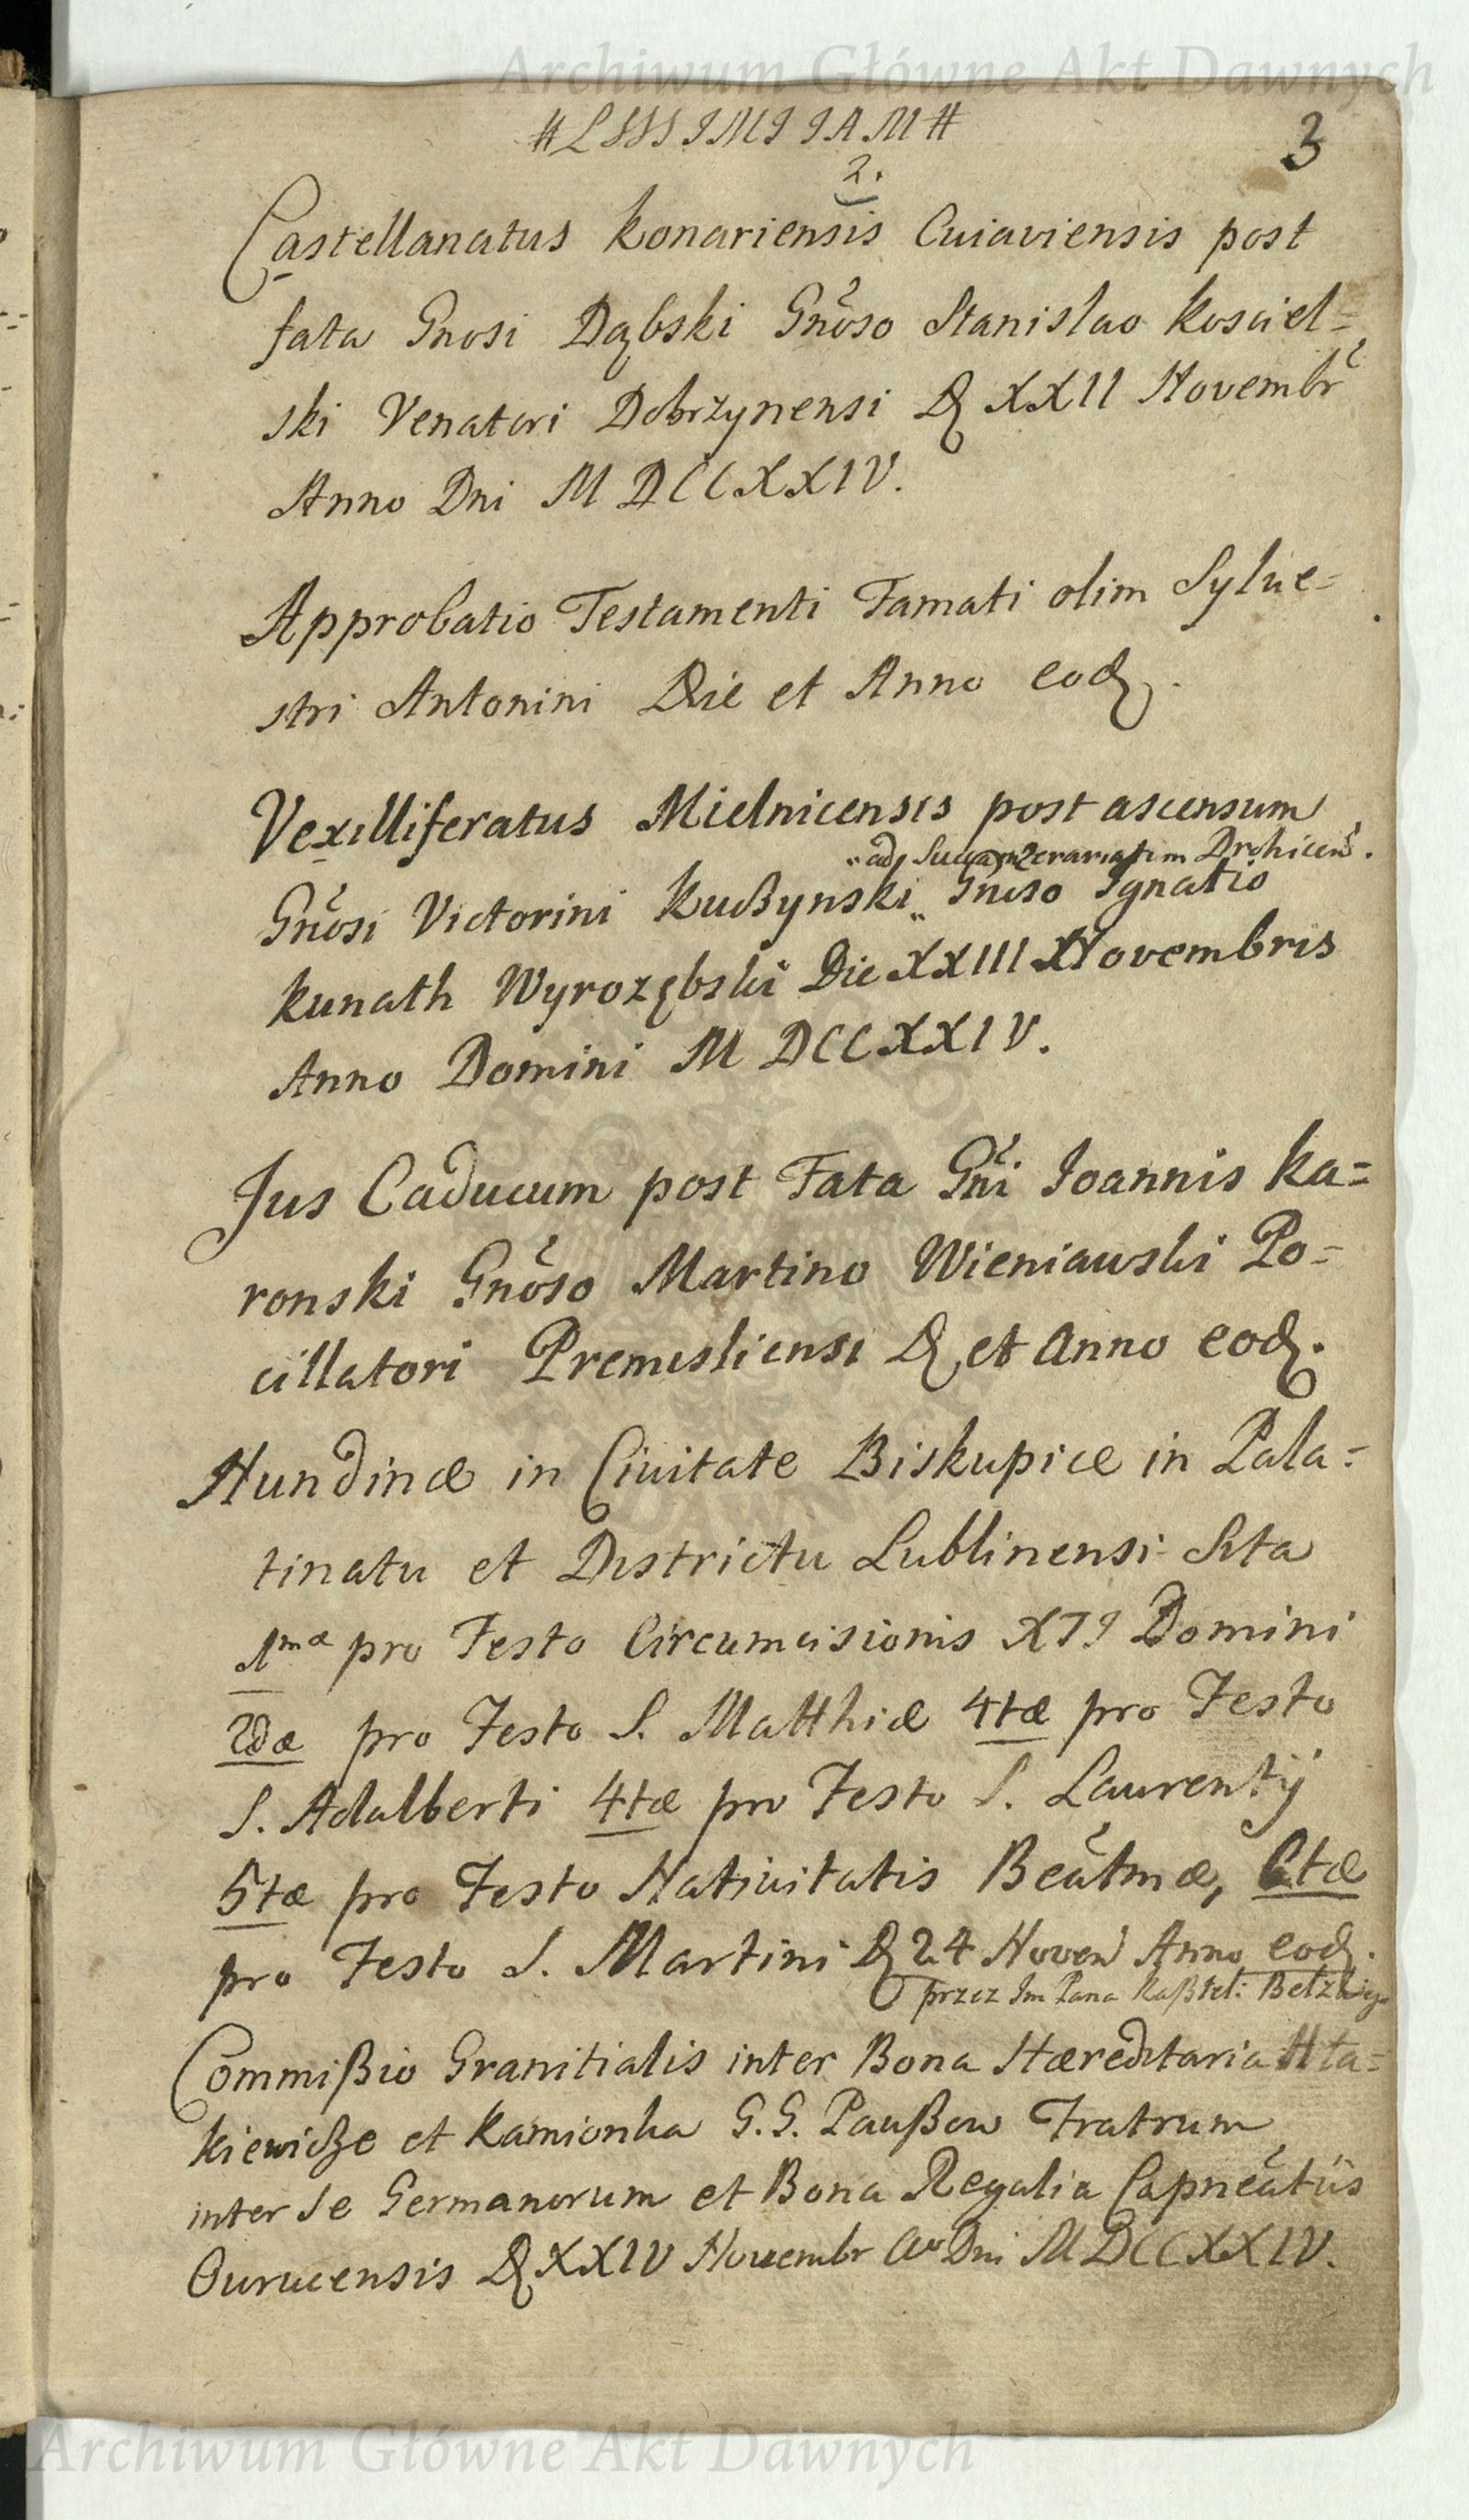 Archiwum Główne Akt Dawnych
#LSSSIMIIAM#
3
2.
Castellanatus Konariensis Cuiaviensis post
fata Gnosi Dąbski Gnoso Stanislao Kosciel=
ski Venatori Dobrzynensi D XXII Novembr
Anno Dni MDCCXXIV.
Approbatio Testamenti Famati olim Sylue=
stri Antonini Die et Anno eod.
Vexilliferatus Mielnicensis post ascensum
ad Drohicen.
Gnosi Victorini Kußynski Gnoso Ignatio
Kunath Wyrozębski Die XXIII Novembris
Anno Domini MDCCXXIV.
Jus Caducum post Fata Gni Ioannis Ka=
ronski Gnoso Martino Wieniawski Po=
cillatori Premisliensi D et Anno eod.
Nundinæ in Ciuitate Biskupice in Pala=
tinatu et Districtu Lublinensi Sita
1mæ pro Festo Circumcisionis XTI Domini
2dæ pro Festo S. Matthiæ 4tæ pro Festo
S. Adalberti 4tæ pro Festo S. Laurentÿ
5tæ pro Festo Natiuitatis Beatmæ, 6tæ
pro Festo S. Martini D 24 Noven Anno eod.
przez Im Pana Kaßtel: Belzkiego
Commißio Granitialis inter Bona Hæreditaria Hta=
kiewicze et Kamionka G.G. Paußow Fratrum
inter se Germanorum et Bona Regalia Capneatüs
Owrucensis D XXIV Nouembr Ao Dni MDCCXXIV.
Archiwum Główne Akt Dawnych